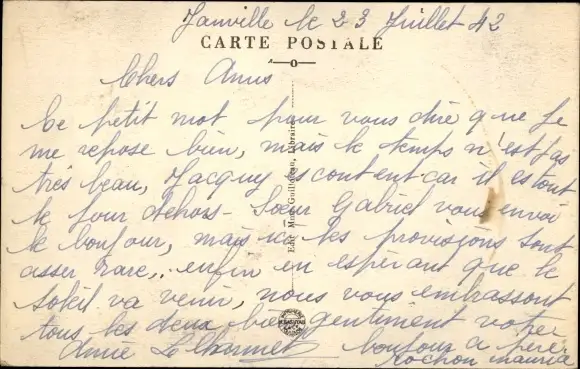 Janville le 23 Juillet 42
CARTE POSTALE
Chers Amis
Ce petit mot pour vous dire que je
me repose bien, mais le temps n'est pas
très beau, Jacquy es content car il es tout
le jour dehors - Sœur Gabriel vous envoi
le bonjour, mais ici les provisions sont
asser rare, enfin en espérant que le
soleil va venir, nous vous embrassont
tous les deux bien gentiment votre
Amie bonjour a père
Rochon